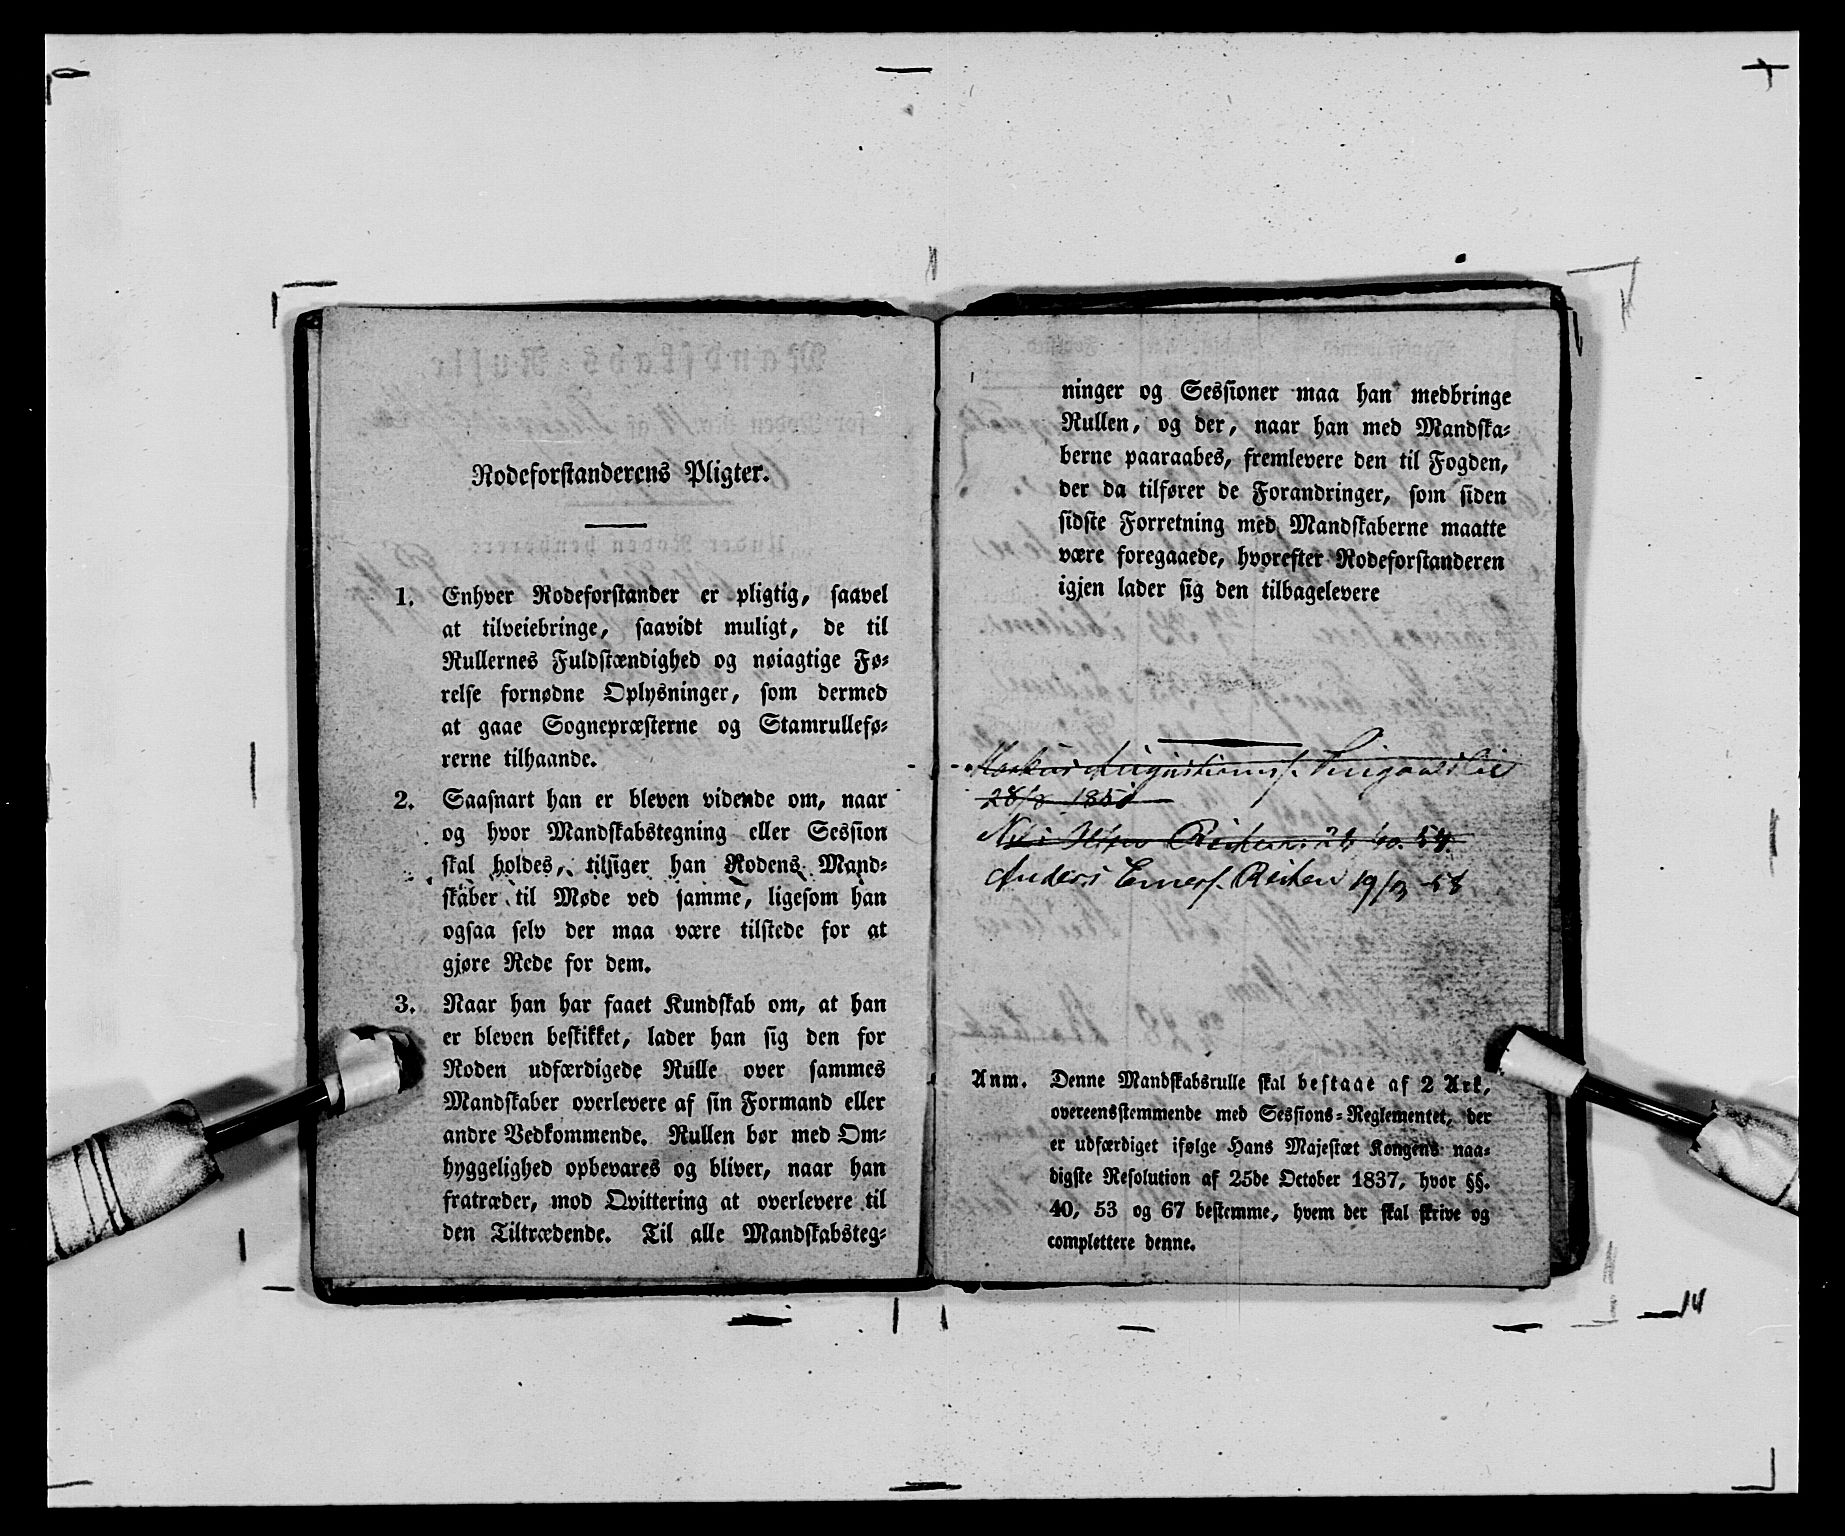 Rodeforstanderens Pligter.
1. Enhver Rodeforstander er pligtig, saavel
at tilveiebringe, saavidt muligt, de til
Rullernes Fuldstændighed og nøiagtige Fø-
relse fornødne Oplysninger, som dermed
at gaae Sognepræsterne og Stamrullefø-
rerne tilhaande.
2. Saasnart han er bleven vidende om, naar
og hvor Mandskabstegning eller Session
skal holdes, tilsiger han Rodens Mand-
skaber til Møde ved samme, ligesom han
ogsaa selv der maa være tilstede for at
gjøre Rede for dem.
3. Naar han har faaet Kundskab om, at han
er bleven beskikket, lader han sig den for
Roden udfærdigede Rulle over sammes
Mandskaber overlevere af sin Formand eller
andre Vedkommende. Rullen bør med Om-
hyggelighed opbevares og bliver, naar han
fratræder, mod Qvittering at overlevere til
den Tiltrædende. Til alle Mandskabsteg-
ninger og Sessioner maa han medbringe
Rullen, og der, naar han med Mandska-
berne paaraabes, fremlevere den til Fogden,
der da tilfører de Forandringer, som siden
sidste Forretning med Mandskaberne maatte
være foregaaede, hvorefter Rodeforstanderen
igjen lader sig den tilbagelevere
28/8 1851
Anders Einersf. Reiten 19/3 58
Anm. Denne Mandskabsrulle skal bestaae af 2 Ark,
overeensstemmende med Sessions-Reglementet, der
er udfærdiget ifølge Hans Majestæt Kongens naa-
digste Resolution af 25de October 1837, hvor §§.
40, 53 og 67 bestemme, hvem der skal skrive og
complettere denne.
14